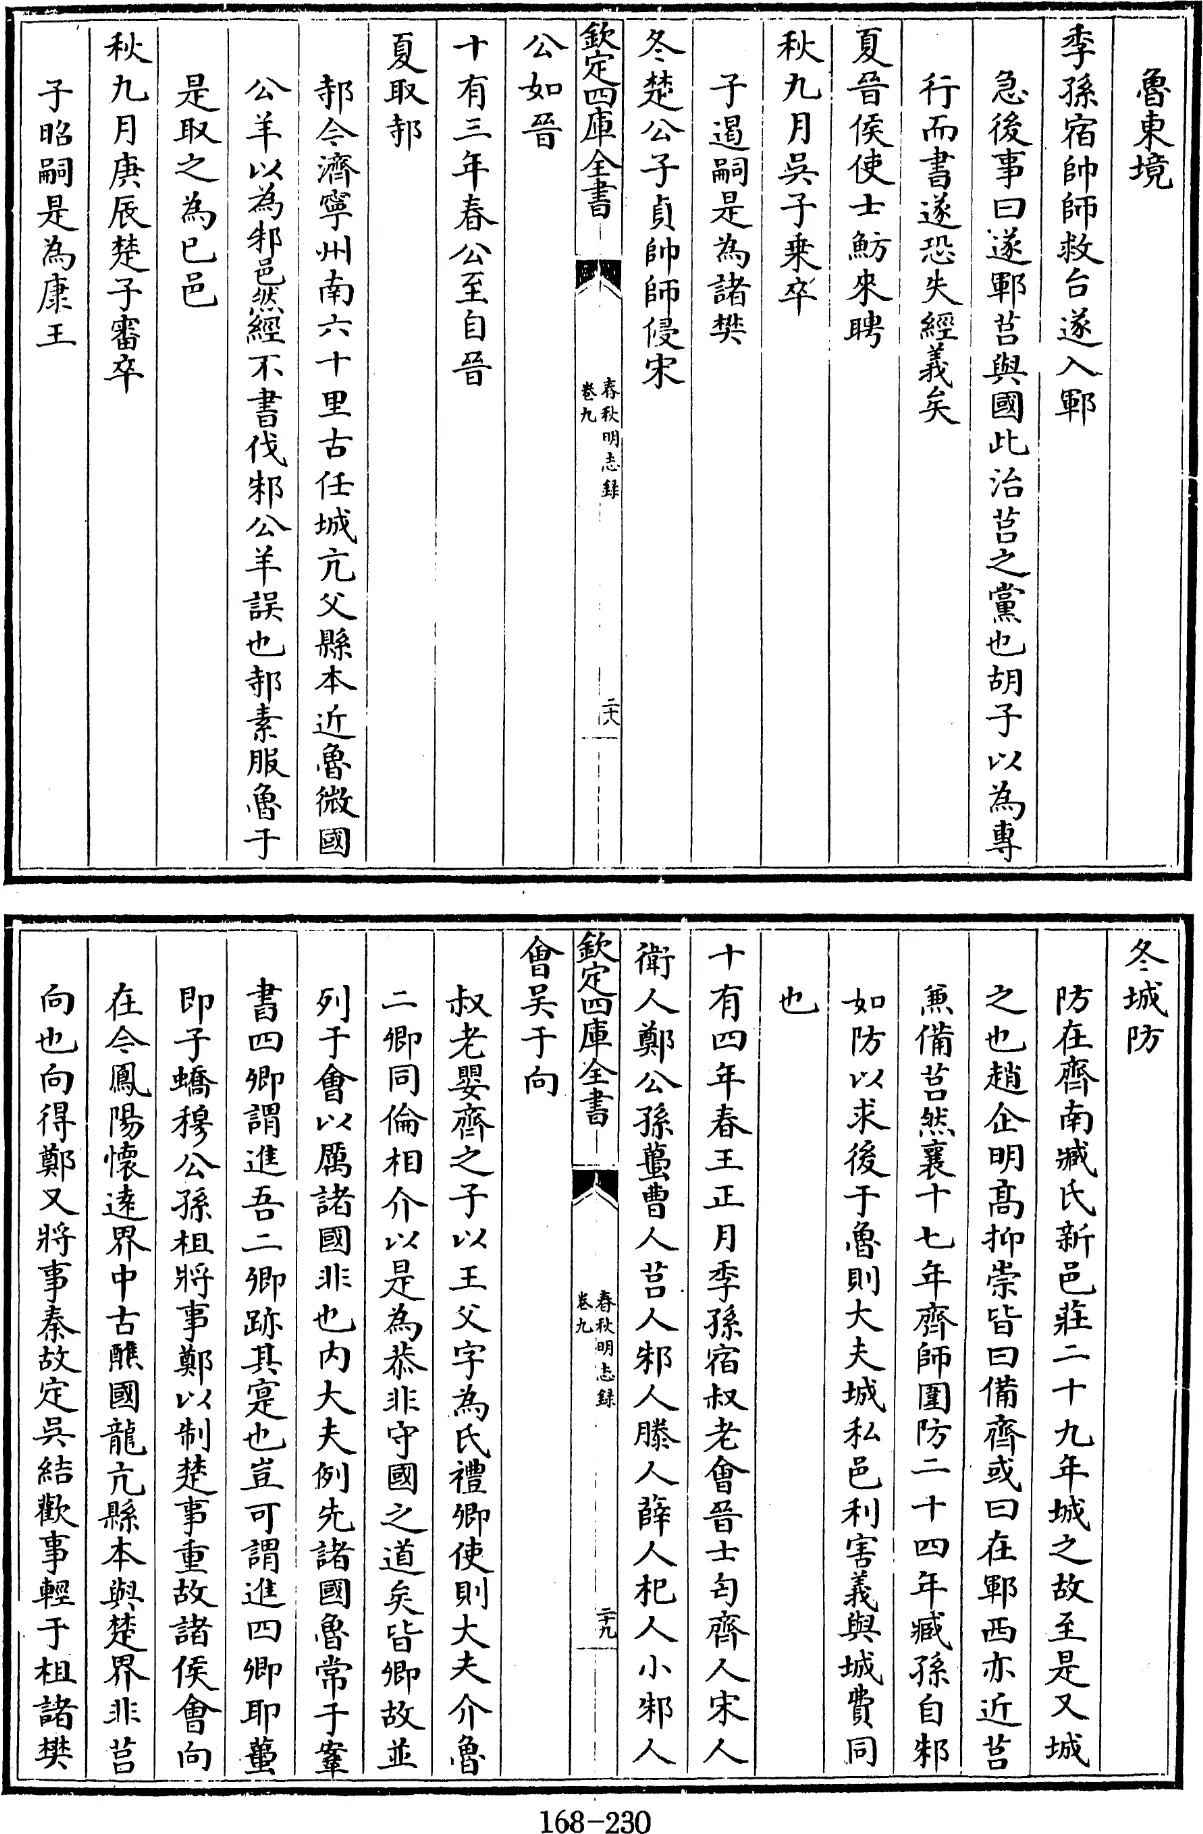 魯東境
季孫宿帥師救台遂入鄆
急後事曰遂鄆莒與國此治莒之黨也胡子以為專
行而書遂恐失經義矣
夏晉侯使士魴來聘
秋九月吳子乗卒
子遏嗣是為諸樊
冬楚公子貞帥師侵宋
欽定四庫全書
春秋明志録
卷九
二十八
公如晉
十有三年春公至自晉
夏取邿
邿今濟寧州南六十里古任城亢父縣本近魯微國
公羊以為邾邑然經不書伐邾公羊誤也邿素服魯于
是取之為已邑
秋九月庚辰楚子審卒
子昭嗣是為康王
冬城防
防在齊南臧氏新邑莊二十九年城之故至是又城
之也趙企明髙抑崇皆曰備齊或曰在鄆西亦近莒
兼備莒然襄十七年齊師圍防二十四年臧孫自邾
如防以求後于魯則大夫城私邑利害義與城費同
也
十有四年春王正月季孫宿叔老會晉士匄齊人宋人
衛人鄭公孫蠆曹人莒人邾人滕人薛人杞人小邾人
欽定四庫全書
春秋明志録
卷九
二十九
會吳于向
叔老嬰齊之子以王父字為氏禮卿使則大夫介魯
二卿同倫相介以是為恭非守國之道矣皆卿故並
列于會以厲諸國非也内大夫例先諸國魯常于鞌
書四卿謂進吾二卿跡其寔也豈可謂進四卿耶蠆
即子蟜穆公孫柤將事鄭以制楚事重故諸侯會向
在今鳳陽懷逺界中古醮國龍亢縣本與楚界非莒
向也向得鄭又將事秦故定吳結歡事輕于柤諸樊
168-230